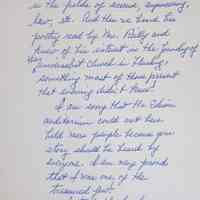 in the fields of science, engineering,
law, etc. And then we heard his
poetry read by Mrs. Reilly and
knew of his interest in the founding of
the Universalist Church in Flushing,
something most of those present
that evening didn't know!
I am sorry that the Tilson
auditorium could not have
held more people because your
story should be heard by
everyone. I am very proud
that I was one of the
treasured few.